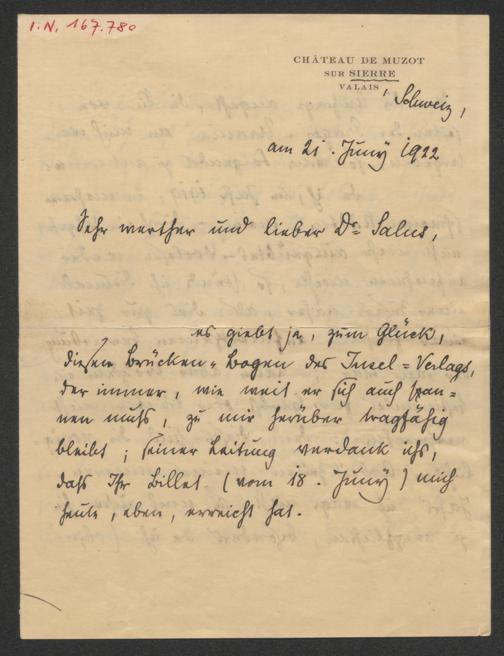 I.N. 167.780
CHÂTEAU DE MUZOT
SUR SIERRE
VALAIS, Schweiz,
am 21. Junÿ 1922
Sehr werther und lieber Dr Salus,
es giebt ja, zum Glück,
diesen Brücken-Bogen des Insel=Verlags,
der immer, wie weit er sich auch span=
nen muß, zu mir herüber tragfähig
bleibt; seiner Leitung verdank ichs,
daß Ihr Billet (vom 18. Junÿ) mich
heute, eben, erreicht hat.